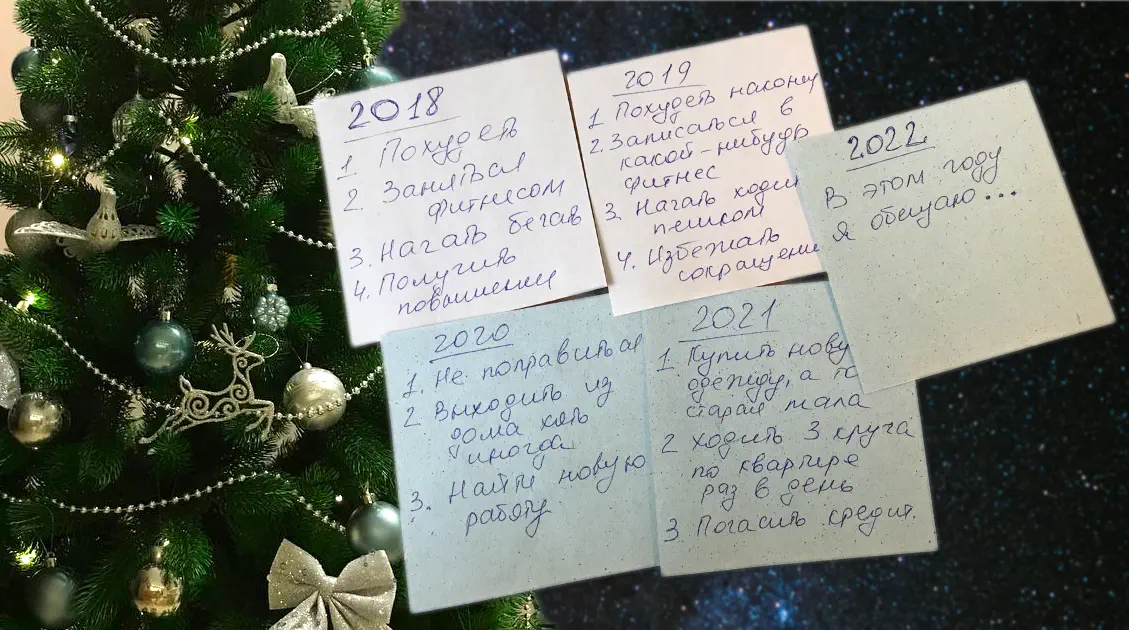 2018
1 Похудеть
2. Заняться
фитнесом
3. Начать бегать
4. Получить
повышение
2019
1 Похудеть наконец
2. Записаться в
какой-нибудь
фитнес
3. Начать ходить
пешком
4. Избежать
сокращения
2020
1. Не поправиться
2 Выходить из
дома хоть
иногда
3. Найти новую
работу
2021
1 Купить новую
одежду, а то
старая мала
2 ходить 3 круга
по квартире
раз в день
3 Погасить кредит.
2022
В этом году
я обещаю...